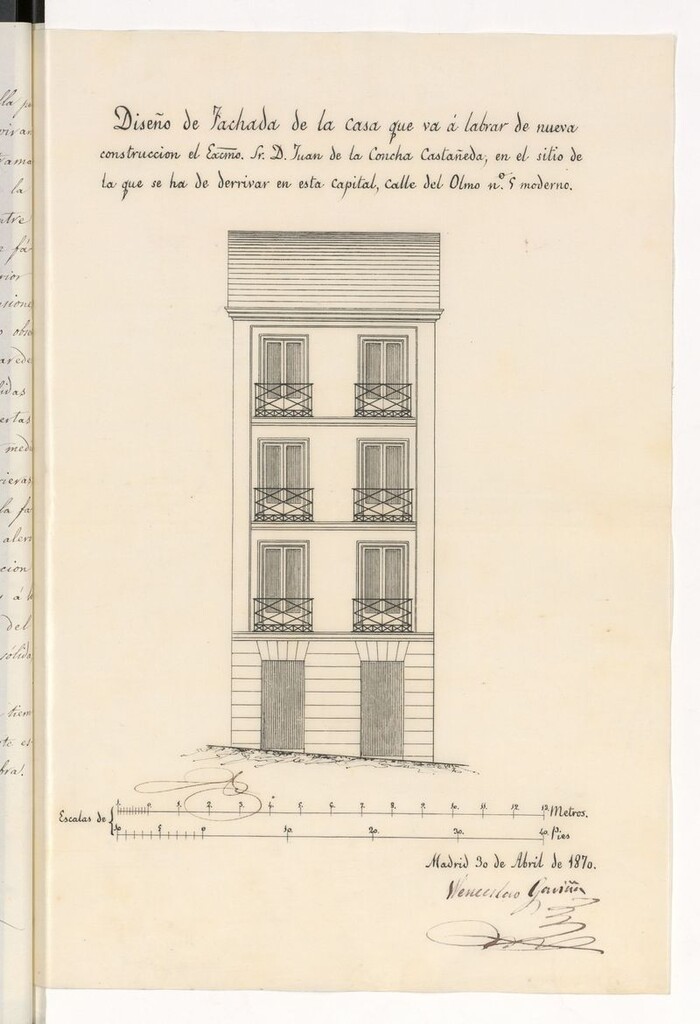 Diseño de Fachada de la casa que va á labrar de nueva
construccion el Excmo. Sr. D. Juan de la Concha Castañeda, en el sitio de
la que se ha de derrivar en esta Capital, calle del Olmo nº. 5 moderno.
la
fá
rior
la fa
cion
á l
del
sólida
tiem
Escalas de
1. 0. 1. 2. 3. 4. 5. 6. 7. 8. 9. 10. 11. 12. 13 Metros.
10 5 0 10. 20. 30. 40. Pies
Madrid 30 de Abril de 1870.
Wenceslao Gaviña